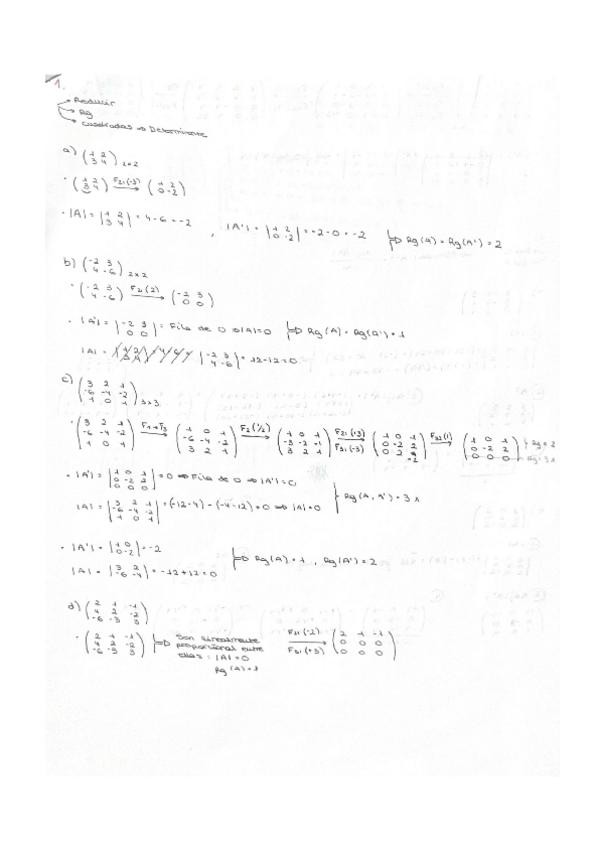 1.
Reducir
Rg
Cuadradas ⇒ Determinante
a) (1 2 / 3 4) 2x2
· (1 2 / 3 4) F21(-3) → (1 2 / 0 -2)
· |A| = |1 2 / 3 4| = 4-6 = -2 , |A'| = |1 2 / 0 -2| = -2-0 = -2 ⇒ Rg(A) = Rg(A') = 2
b) (-2 3 / 4 -6) 2x2
· (-2 3 / 4 -6) F21(2) → (-2 3 / 0 0)
· |A'| = |-2 3 / 0 0| = Fila de 0 ⇒ |A|=0 ⇒ Rg(A) = Rg(A') = 1
|A| = |-2 3 / 4 -6| = 12-12 = 0
c) (3 2 1 / -6 -4 -2 / 1 0 1) 3x3
· (3 2 1 / -6 -4 -2 / 1 0 1) F1↔F3 → (1 0 1 / -6 -4 -2 / 3 2 1) F2(1/2) → (1 0 1 / -3 -2 -1 / 3 2 1) F21(+3) F31(-3) → (1 0 1 / 0 -2 2 / 0 2 -2) F32(1) → (1 0 1 / 0 -2 2 / 0 0 0)
· |A'| = |1 0 1 / 0 -2 2 / 0 0 0| = 0 ⇒ Fila de 0 ⇒ |A'| = 0
|A| = |3 2 1 / -6 -4 -2 / 1 0 1| = (-12-4) - (-4-12) = 0 ⇒ |A| = 0
Rg(A, A') = 3 x
· |A'| = |1 0 / 0 -2| = -2
|A| = |3 2 / -6 -4| = -12+12 = 0 ⇒ Rg(A) = 1 , Rg(A') = 2
d) (2 1 -1 / 4 2 -2 / -6 -3 3)
· (2 1 -1 / 4 2 -2 / -6 -3 3) ⇒ Son linealmente F21(-2) F31(+3) → (2 1 -1 / 0 0 0 / 0 0 0)
proporcional entre
ellas: |A| = 0
Rg(A) = 1